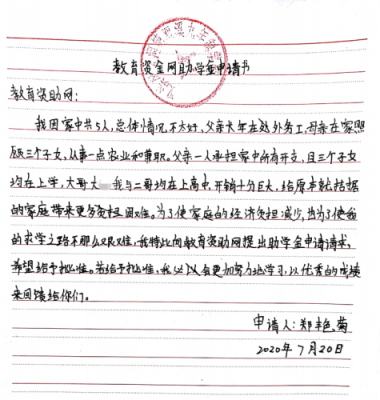 教育资金网助学金申请书
教育资助网：
我因家中共5人，总体情况不太好，父亲长年在处外务工，母亲在家照
顾三个子女，从事一点农业和兼职。父亲一人承担家中所有开支，且三个子女
均在上学，大哥大 我与二哥均在上高中，开销十分巨大，给原本就拮据
的家庭带来更多负担困难。为了使家庭的经济负担减少，也为了使我
的求学之路不那么艰难，我特此向教育资助网提出助学金申请请求，
希望给予批准。若给予批准，我必以会更加努力地学习，以优秀的成绩
来回馈给你们。
申请人：郑艳菊
2020年7月20日